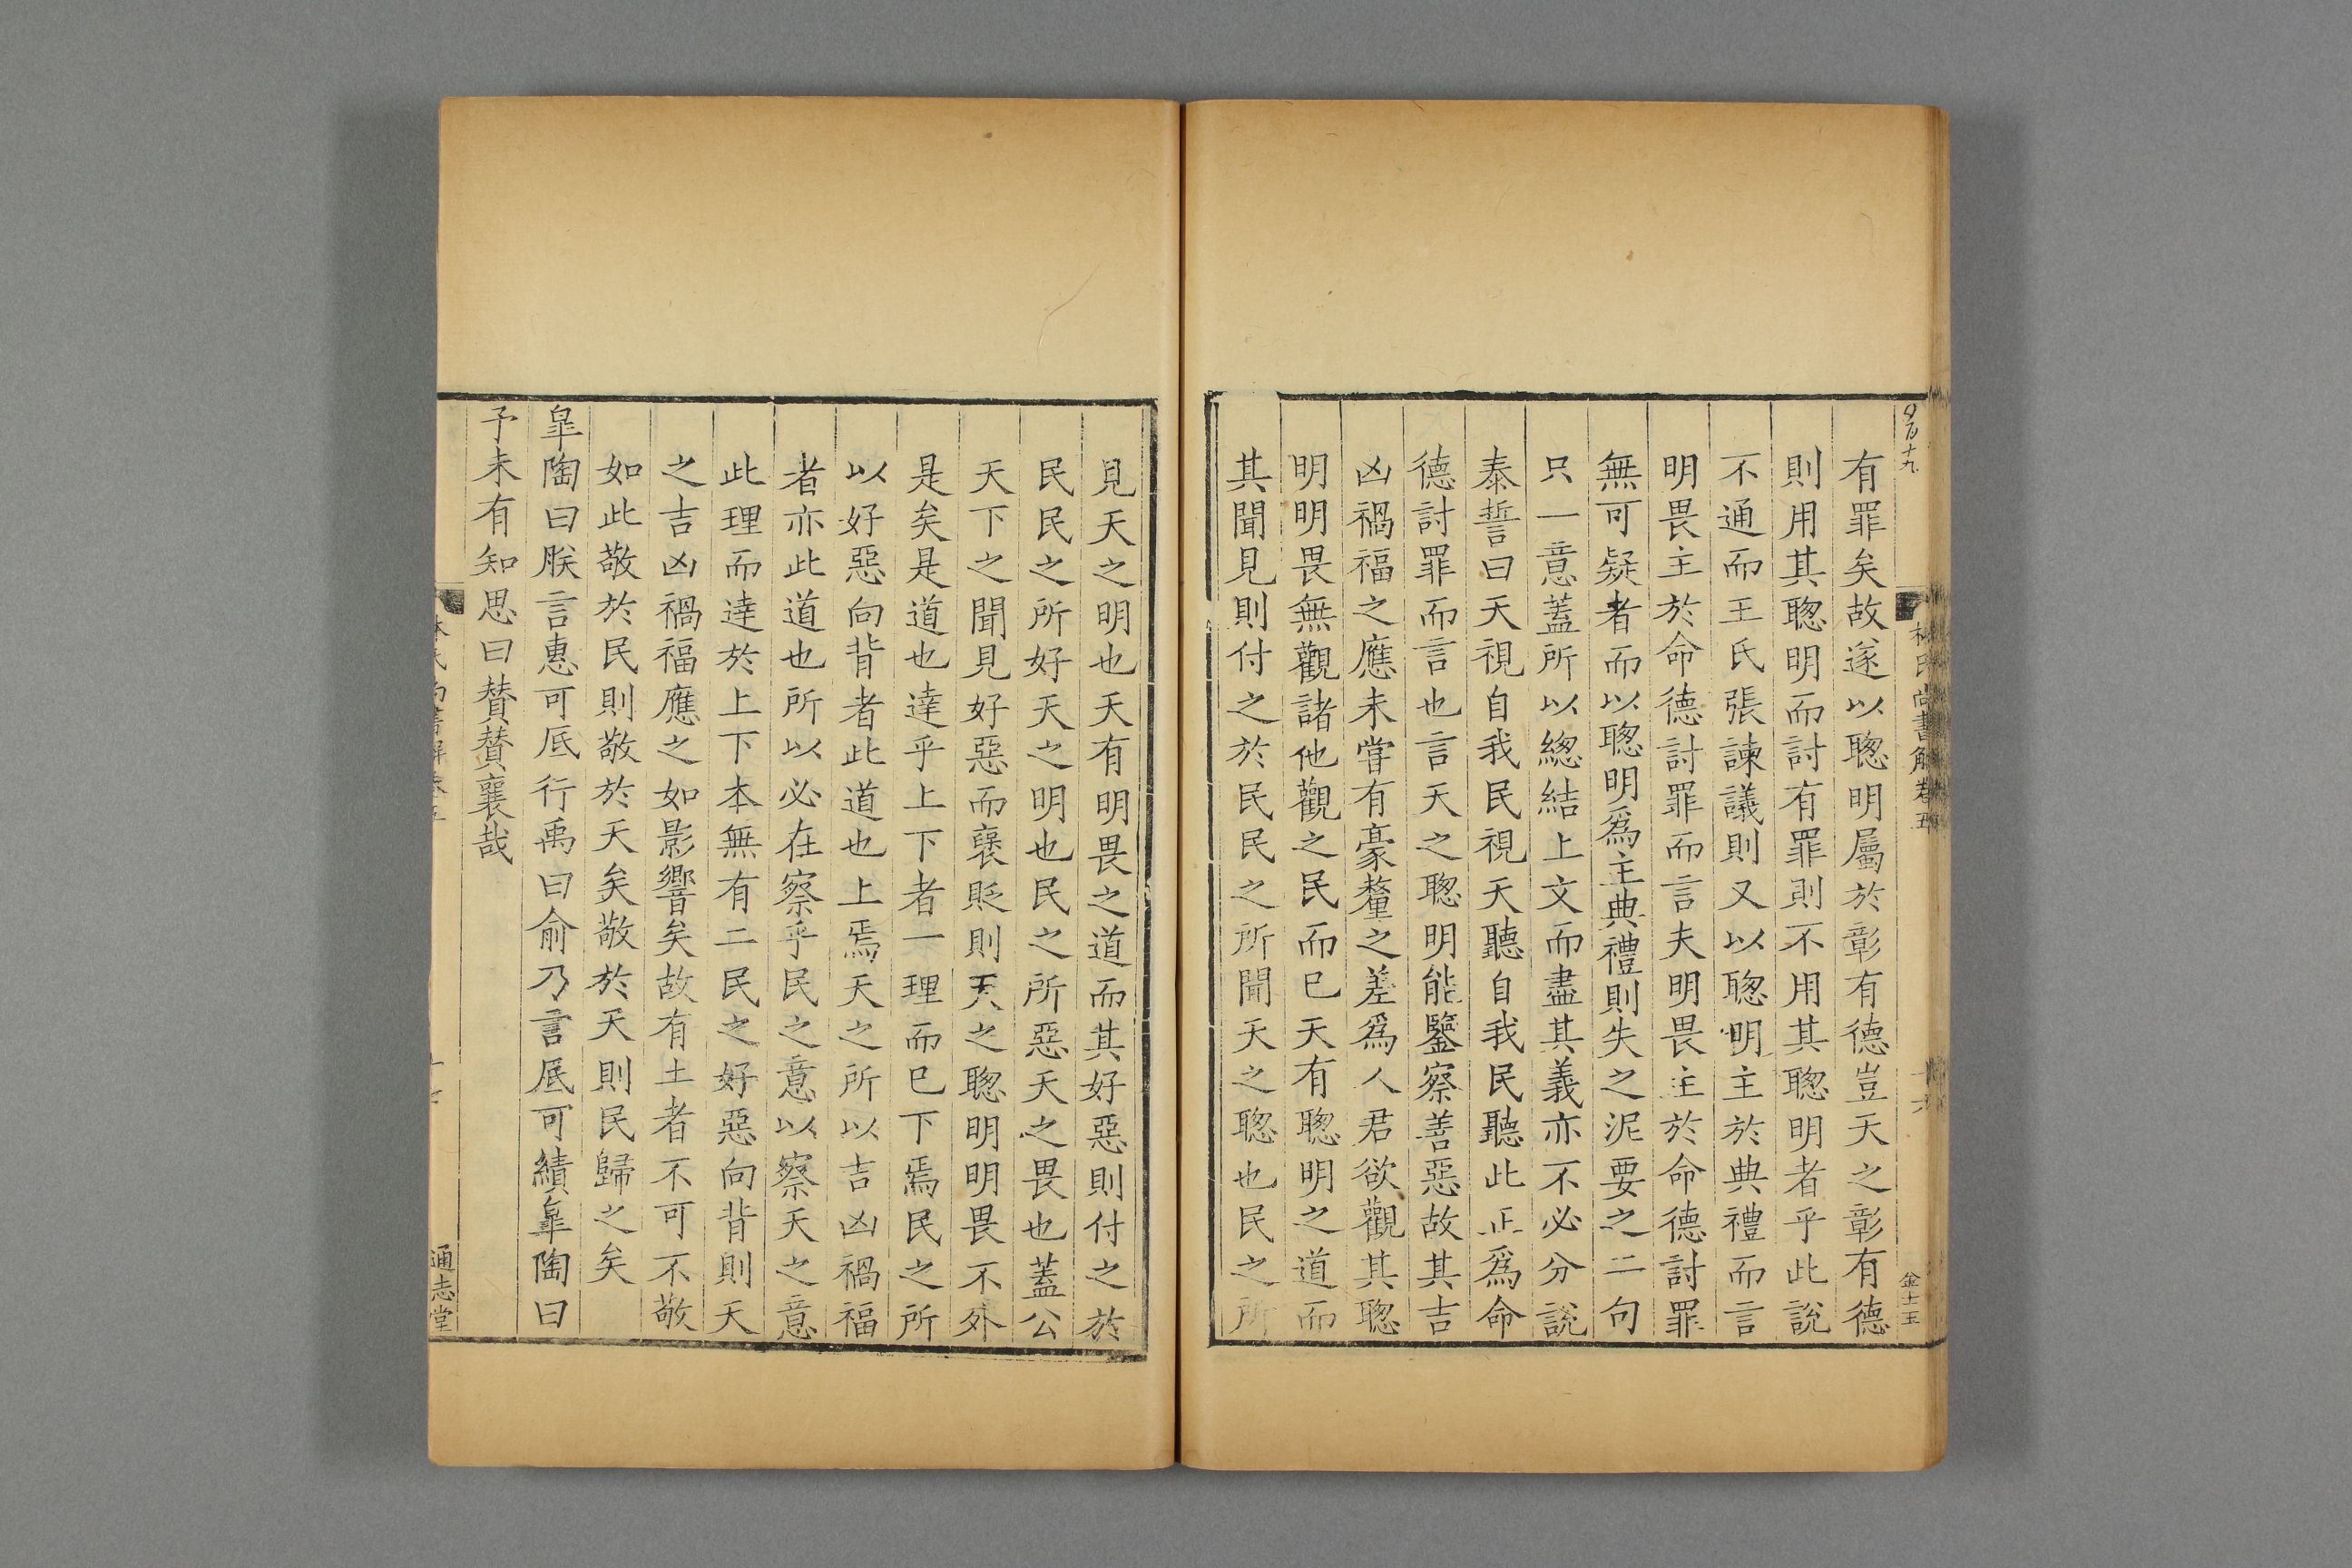 林氏尚書解卷五
有罪矣故遂以聦明屬於彰有德豈天之彰有德
則用其聦明而討有罪則不用其聦明者乎此說
不通而王氏張諫議則又以聦明主於典禮而言
明畏主於命德討罪而言夫明畏主於命德討罪
無可疑者而以聦明爲主典禮則失之泥要之二句
只一意蓋所以總結上文而盡其義亦不必分說
泰誓曰天視自我民視天聽自我民聽此正爲命
德討罪而言也言天之聦明能鑒察善惡故其吉
凶禍福之應未嘗有豪釐之差爲人君欲觀其聦
明明畏無觀諸他觀之民而已天有聦明之道而
其聞見則付之於民民之所聞天之聦也民之所
見天之明也天有明畏之道而其好惡則付之於
民民之所好天之明也民之所惡天之畏也蓋公
天下之聞見好惡而襃貶則天之聦明明畏不外
是矣是道也達乎上下者一理而已下焉民之所
以好惡向背者此道也上焉天之所以吉凶禍福
者亦此道也所以必在察乎民之意以察天之意
此理而達於上下本無有二民之好惡向背則天
之吉凶禍福應之如影響矣故有土者不可不敬
如此敬於民則敬於天矣敬於天則民歸之矣
皐陶曰朕言惠可厎行禹曰俞乃言厎可績皐陶曰
予未有知思曰贊贊襄哉
通志堂